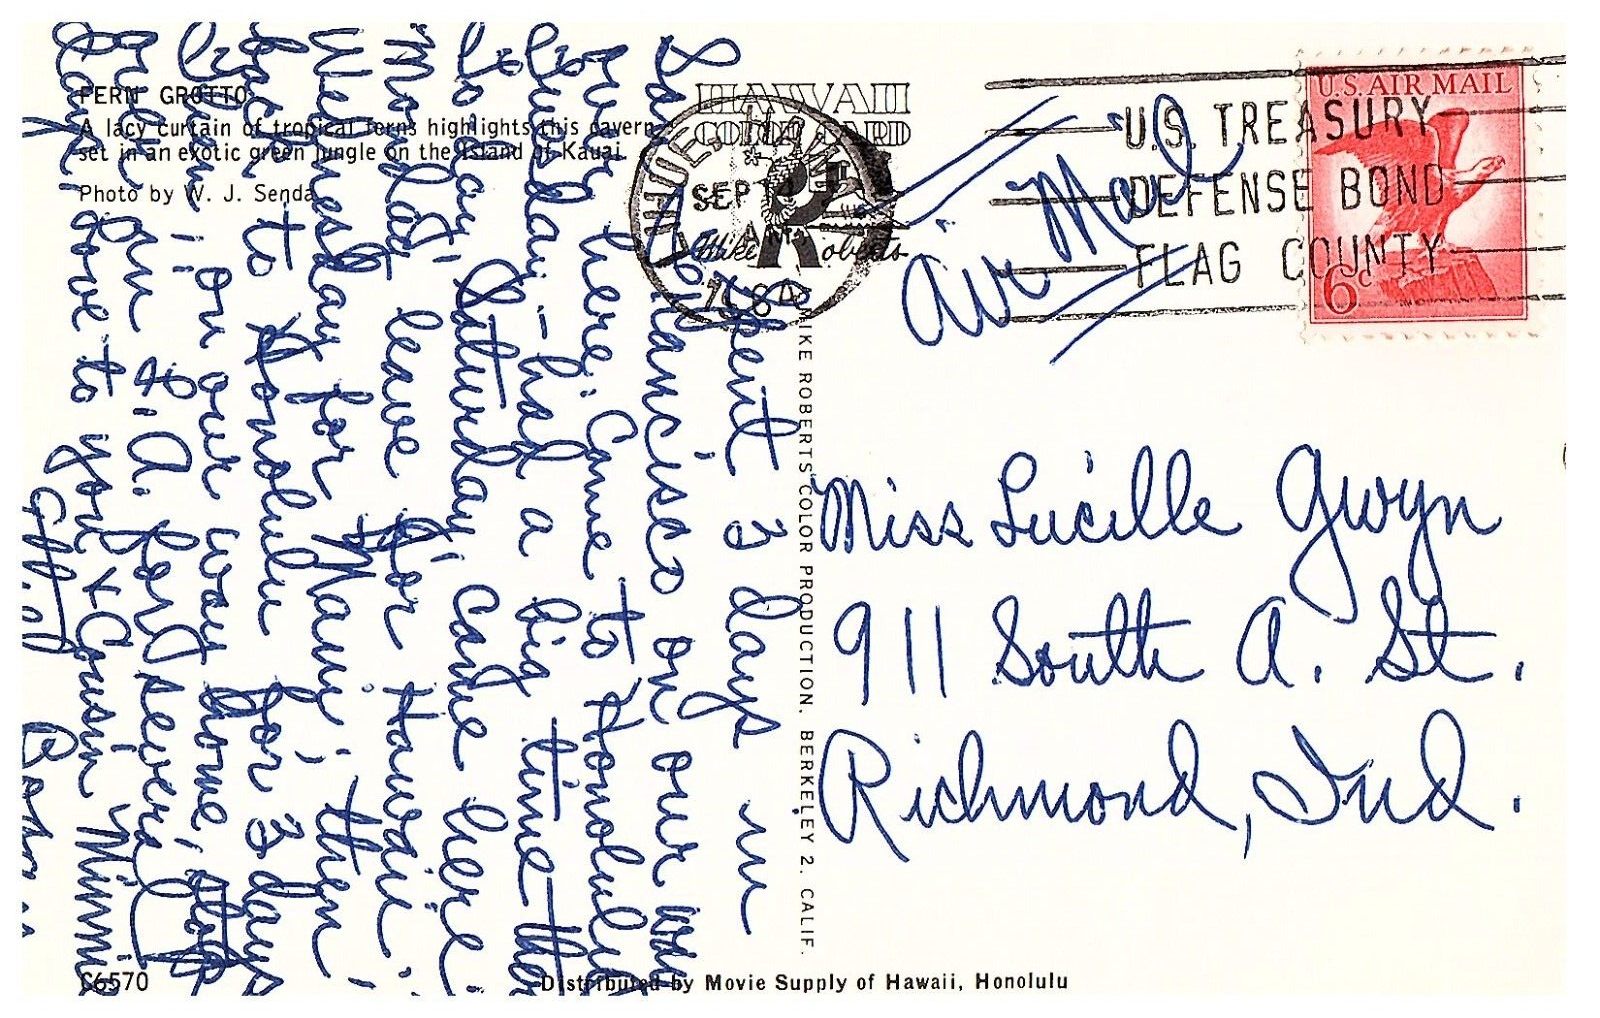 FERN GROTTO
A lacy curtain of tropical ferns highlights this cavern
set in an exotic green jungle on the Island of Kauai.
Photo by W. J. Senda
HAWAII
COLOR CARD
Mike Roberts
LIHUE, HAWAII
SEP
AM
1964
U.S. TREASURY
DEFENSE BOND
FLAG COUNTY
U.S. AIR MAIL
6c
Air Mail
Spent 3 days in
San Francisco on our way
over here. Came to Honolulu
Tuesday – had a big time
to-day, Saturday, came here;
Monday, leave for Hawaii;
Wednesday for Maui; then
back to Honolulu for 3 days
then, on our way home, stop
over in L.A. for several
days. Love to you + Cousin Minnie
MIKE ROBERTS COLOR PRODUCTION. BERKELEY 2. CALIF.
Miss Lucille Gwyn
911 South A. St.
Richmond, Ind.
C6570
Distributed by Movie Supply of Hawaii, Honolulu